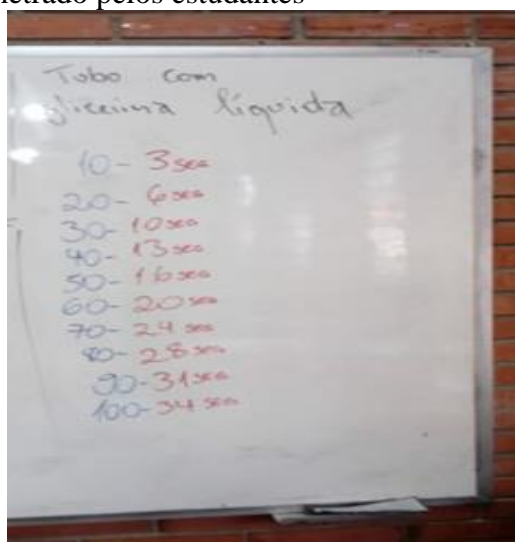 metrado pelos estudantes
Tubo com
glicerina líquida
10- 3seg
20- 6seg
30- 10seg
40- 13seg
50- 16seg
60- 20seg
70- 24seg
80- 28seg
90- 31seg
100- 34seg